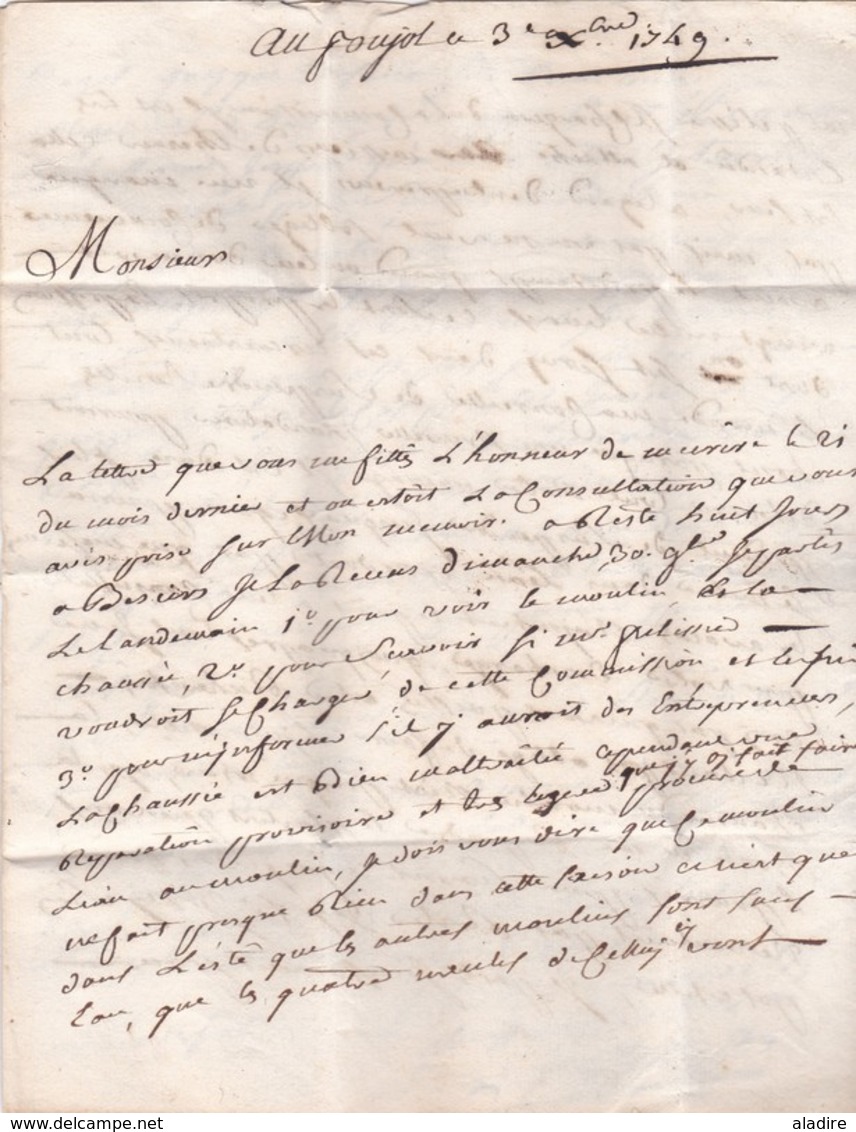 Au poujol ce 3e Xbre 1749.
Monsieur
La lettre que vous me fittes L'honneur de mecrire le 21
du mois dernier et ou estoit La Consultation que vous
avés prise sur Mon memoir. a Resté huit Jours
a Besiers Je La Receus dimanche 30. 9bre Je partis
Le Landemain 1o pour voir le moulin et la
chaussée, 2o pour Scavoir si mr. pelissie
voudroit se Charger de cette Commission et le prix
3o pour m'informer S'il y auroit des Entrepreneurs,
La Chaussée est Bien maltraitée cependant une
Reparation provisoire que j'y ai fait faire
et tres legere procure de
L'eau au moulin, Je dois vous dire que Ce moulin
ne fait presque Rien dans cette saison ce n'est que
dans L'esté que les autres moulins sont sans
Eau, que les quatre meules de Celluy cy vont
delcampe.net
aladire